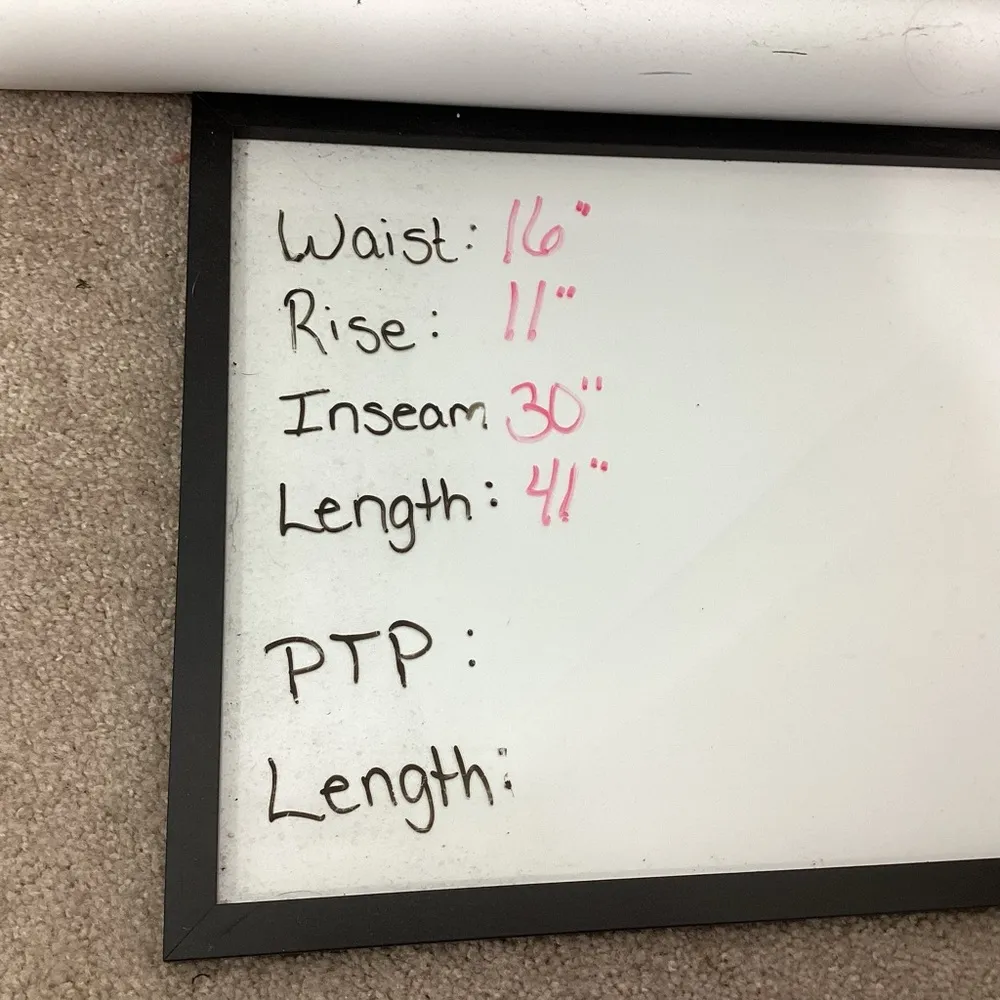 Waist: 16"
Rise: 11"
Inseam 30"
Length: 41"
PTP :
Length: